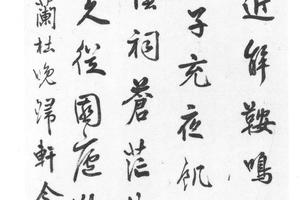 近解鞍鳴
子充夜飢
祠蒼茫
久從園廬
蘭杜晚歸軒